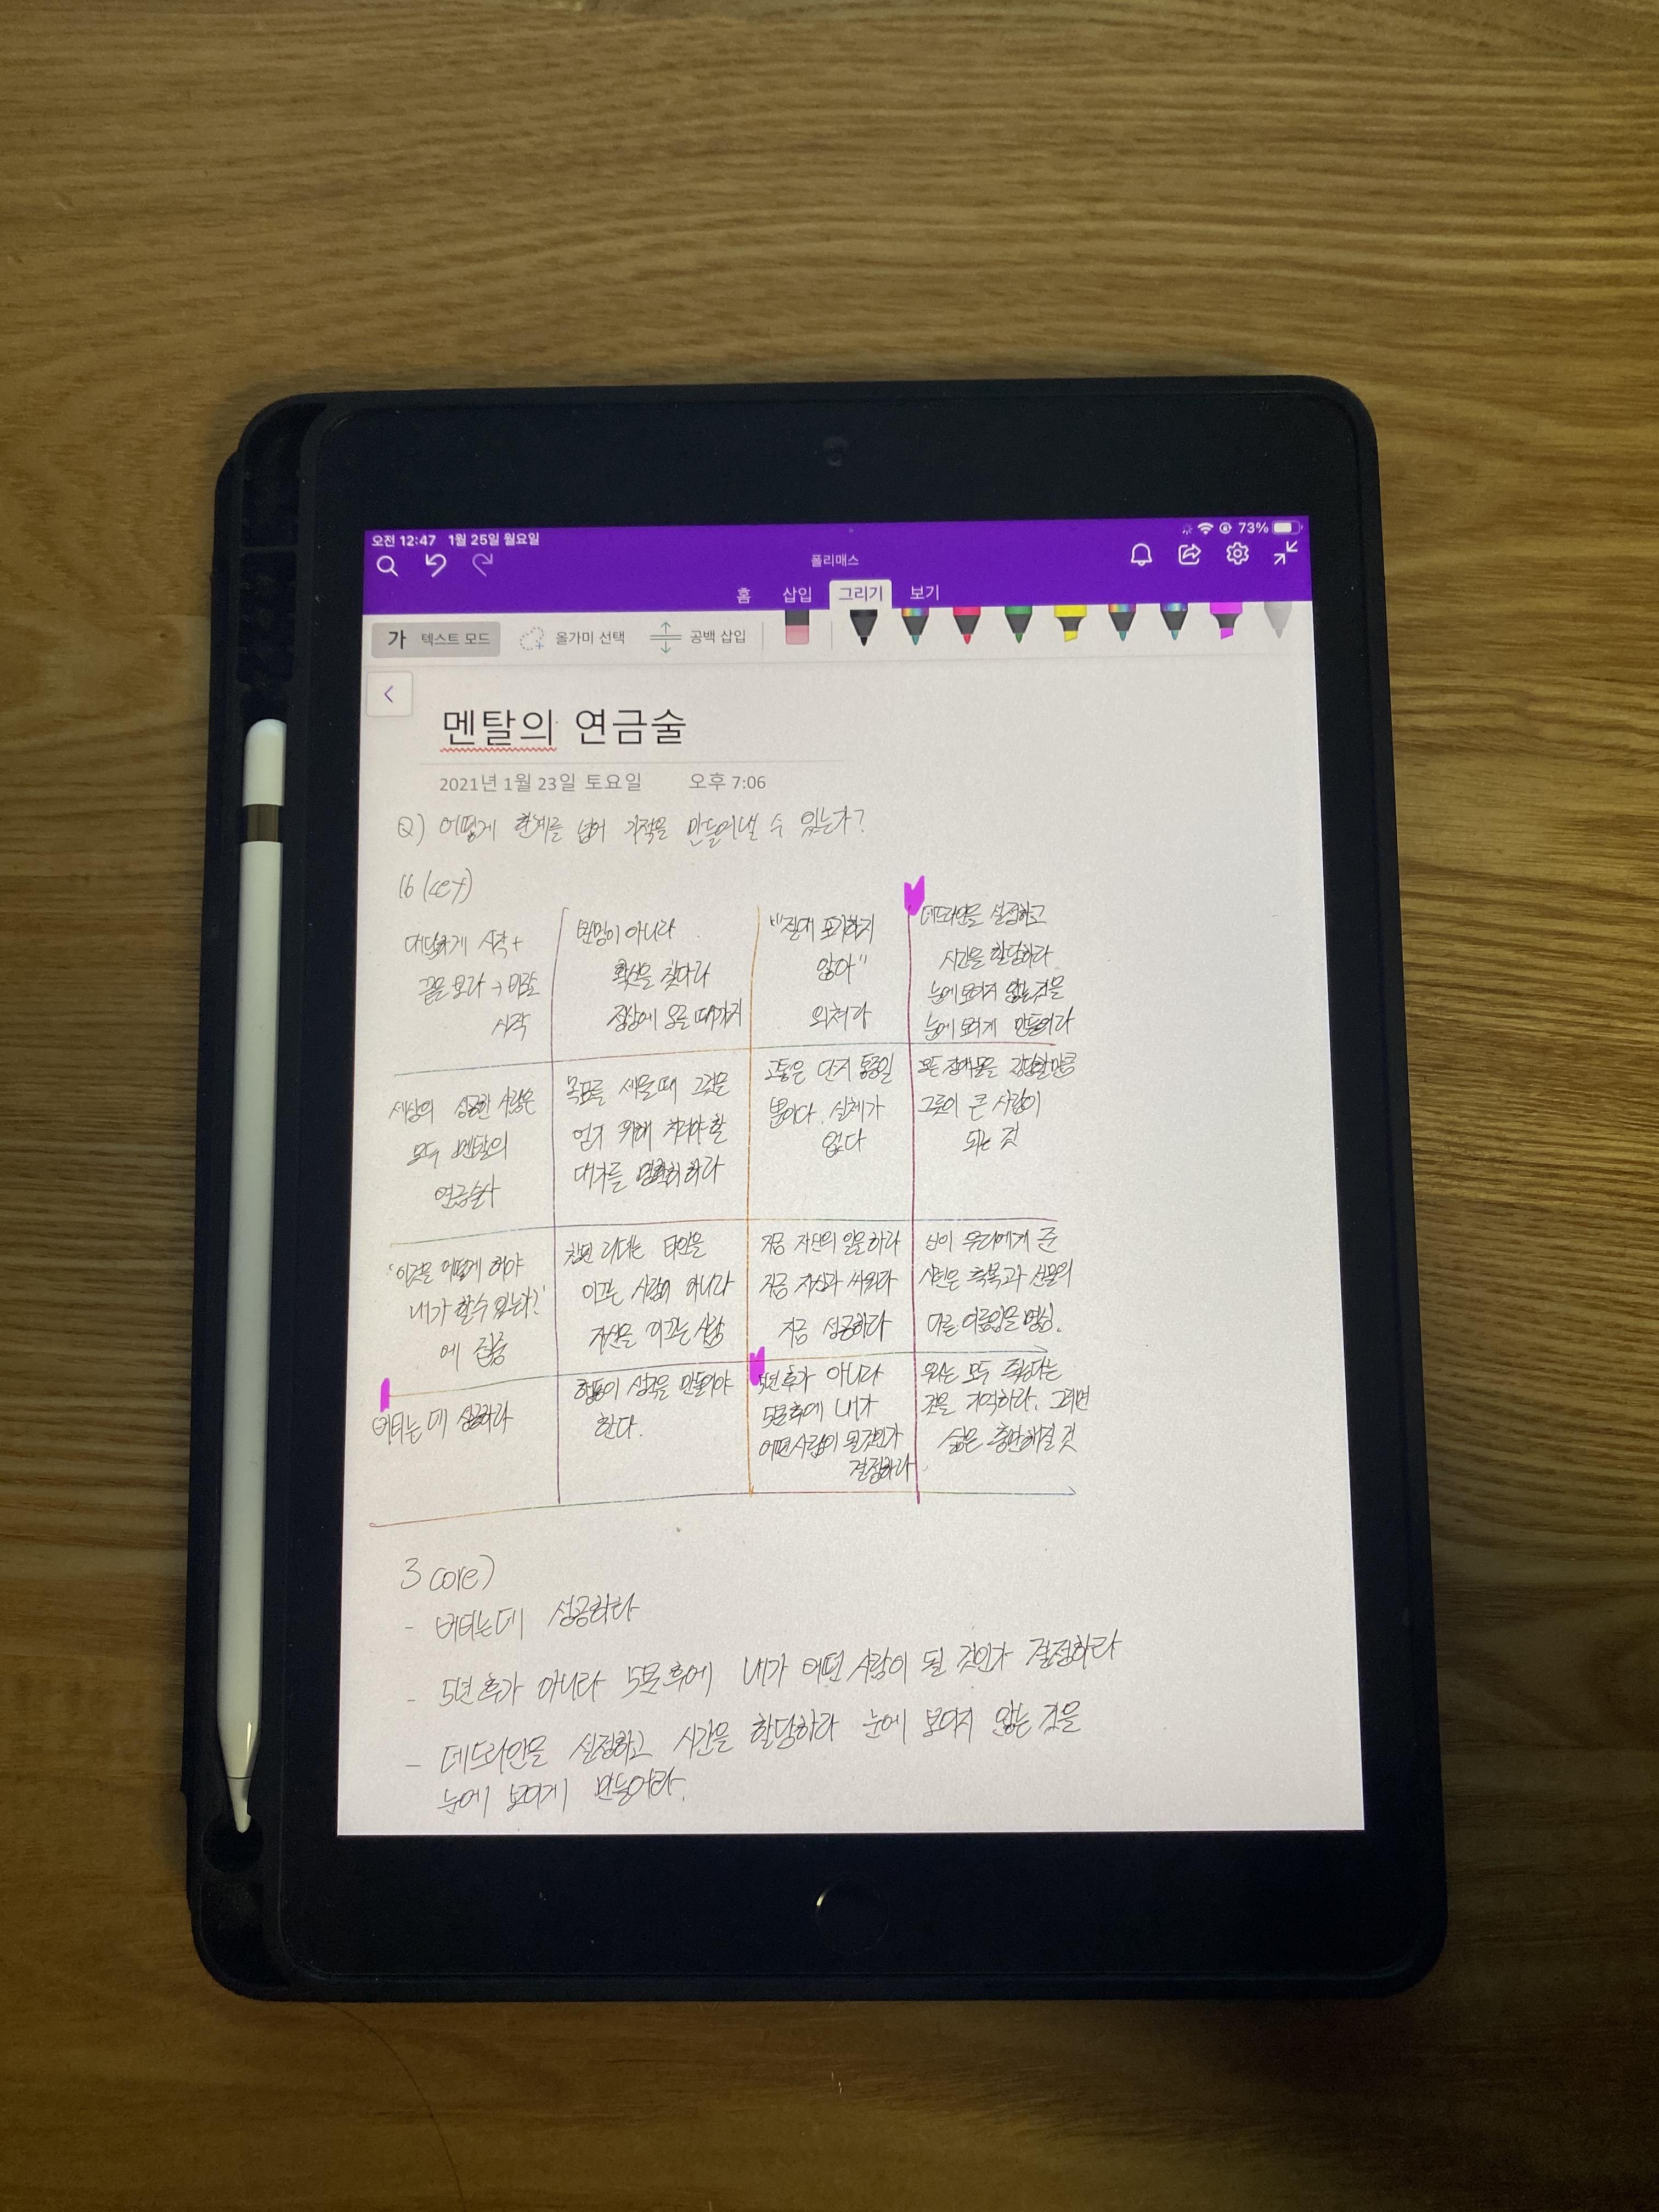 오전 12:47 1월 25일 월요일
73%
폴리매스
홈 삽입 그리기 보기
가 텍스트 모드 올가미 선택 공백 삽입
멘탈의 연금술
2021년 1월 23일 토요일 오후 7:06
Q) 어떻게 한계를 넘어 기적을 만들어낼 수 있는가?
16 key)
대담하게 시작+
끝을 보라 →
시작
변명이 아니라
확신을 찾아라
정상에 오를 때까지
"절대 포기하지
않아"
외쳐라
데드라인을 설정하고
시간을 할당하라
눈에 보이지 않는 것을
눈에 보이게 만들어라
세상의 성공한 사람은
모두 멘탈의
연금술사
목표를 세울 때 그것을
얻기 위해 치러야 할
대가를 명확히 하라
고통은 단지 통증일
뿐이다. 실체가
없다
모든 장애물을 감당할만큼
그릇이 큰 사람이
되는 것
'이것을 어떻게 해야
내가 할 수 있는가?'
에 집중
참된 리더는 타인을
이끄는 사람이 아니라
자신을 이끄는 사람
지금 자신의 일을 하라
지금 자신과 싸워라
지금 성공하라
신이 우리에게 준
시련은 축복과 선물의
다른 이름임을 명심.
버티는 데 성공하라
행동이 생각을 만들어야
한다.
5년 후가 아니라
5분 후에 내가
어떤 사람이 될 것인가
결정하라
우리는 모두 죽는다는
것을 기억하라. 그러면
삶은 충만해질 것
3 core)
- 버티는데 성공하라
- 5년 후가 아니라 5분 후에 내가 어떤 사람이 될 것인가 결정하라
- 데드라인을 설정하고 시간을 할당하라 눈에 보이지 않는 것을
눈에 보이게 만들어라.